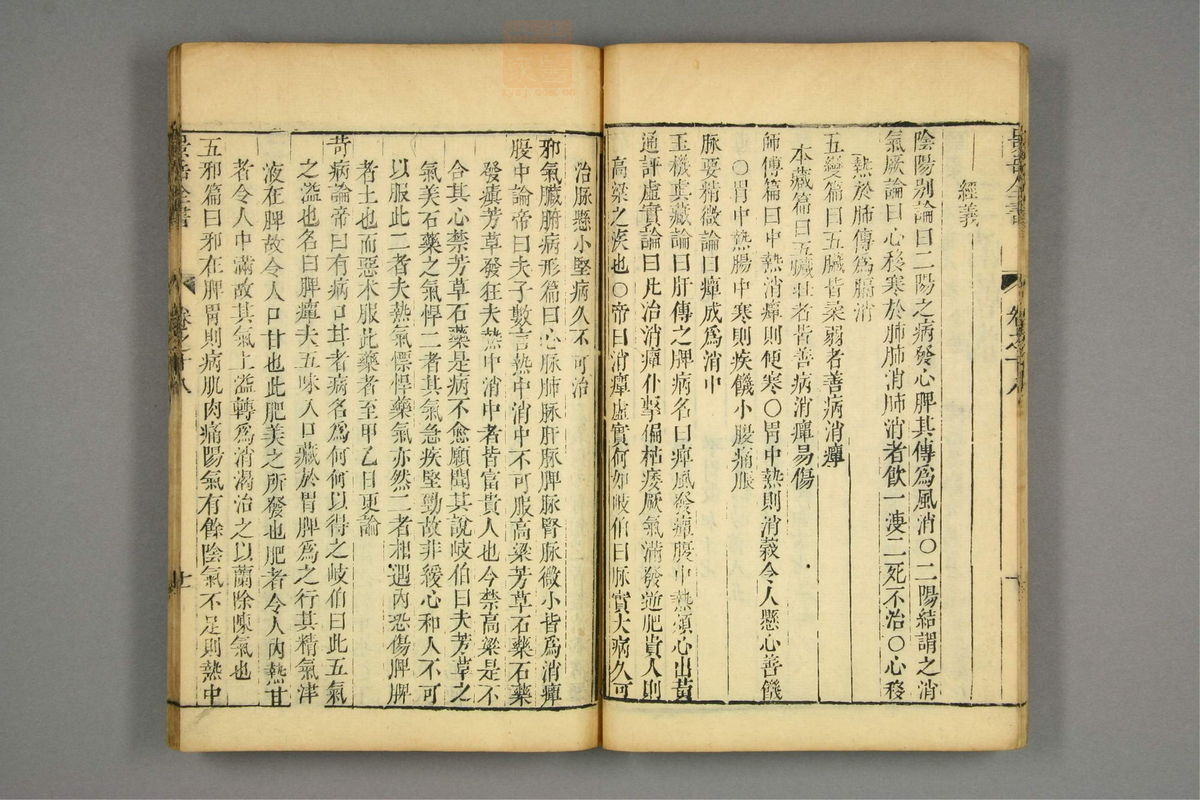 景岳全書
卷之十八
十
經義
陰陽別論曰二陽之病發心脾其傳爲風消〇二陽結謂之消
氣厥論曰心移寒於肺肺消肺消者飲一溲二死不治〇心移
熱於肺傳爲膈消
五變篇曰五臟皆柔弱者善病消癉
本藏篇曰五臟壯者皆善病消癉易傷
師傳篇曰中熱消癉則便寒〇胃中熱則消穀令人懸心善饑
〇胃中熱腸中寒則疾饑小腹痛脹
脉要精微論曰癉成爲消中
玉機真藏論曰肝傳之脾病名曰癉風發癉腹中熱煩心出黃
通評虛實論曰凡治消癉仆擊偏枯痿厥氣滿發逆肥貴人則
高粱之疾也〇帝曰消癉虛實何如岐伯曰脉實大病久可
治脉懸小堅病久不可治
邪氣臟腑病形篇曰心脉肺脉肝脉脾脉腎脉微小皆爲消癉
腹中論帝曰夫子數言熱中消中不可服高粱芳草石藥石藥
發癲芳草發狂夫熱中消中者皆富貴人也今禁高粱是不
合其心禁芳草石藥是病不愈願聞其說岐伯曰夫芳草之
氣美石藥之氣悍二者其氣急疾堅勁故非緩心和人不可
以服此二者夫熱氣慓悍藥氣亦然二者相遇內恐傷脾脾
者土也而惡木服此藥者至甲乙日更論
奇病論帝曰有病口甘者病名爲何何以得之岐伯曰此五氣
之溢也名曰脾癉夫五味入口藏於胃脾爲之行其精氣津
液在脾故令人口甘也此肥美之所發也肥者令人內熱甘
者令人中滿故其氣上溢轉爲消渴治之以蘭除陳氣也
五邪篇曰邪在脾胃則病肌肉痛陽氣有餘陰氣不足則熱中
景岳全書
卷之十八
十一